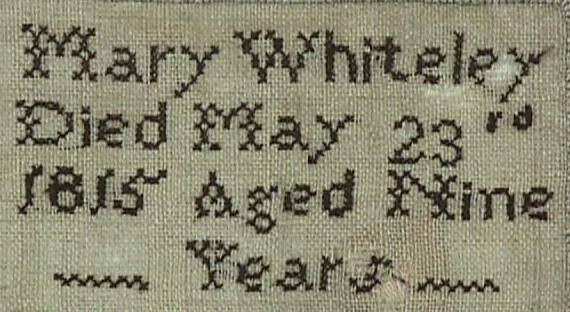 Mary Whiteley
Died May 23rd
1815 Aged Nine
Years